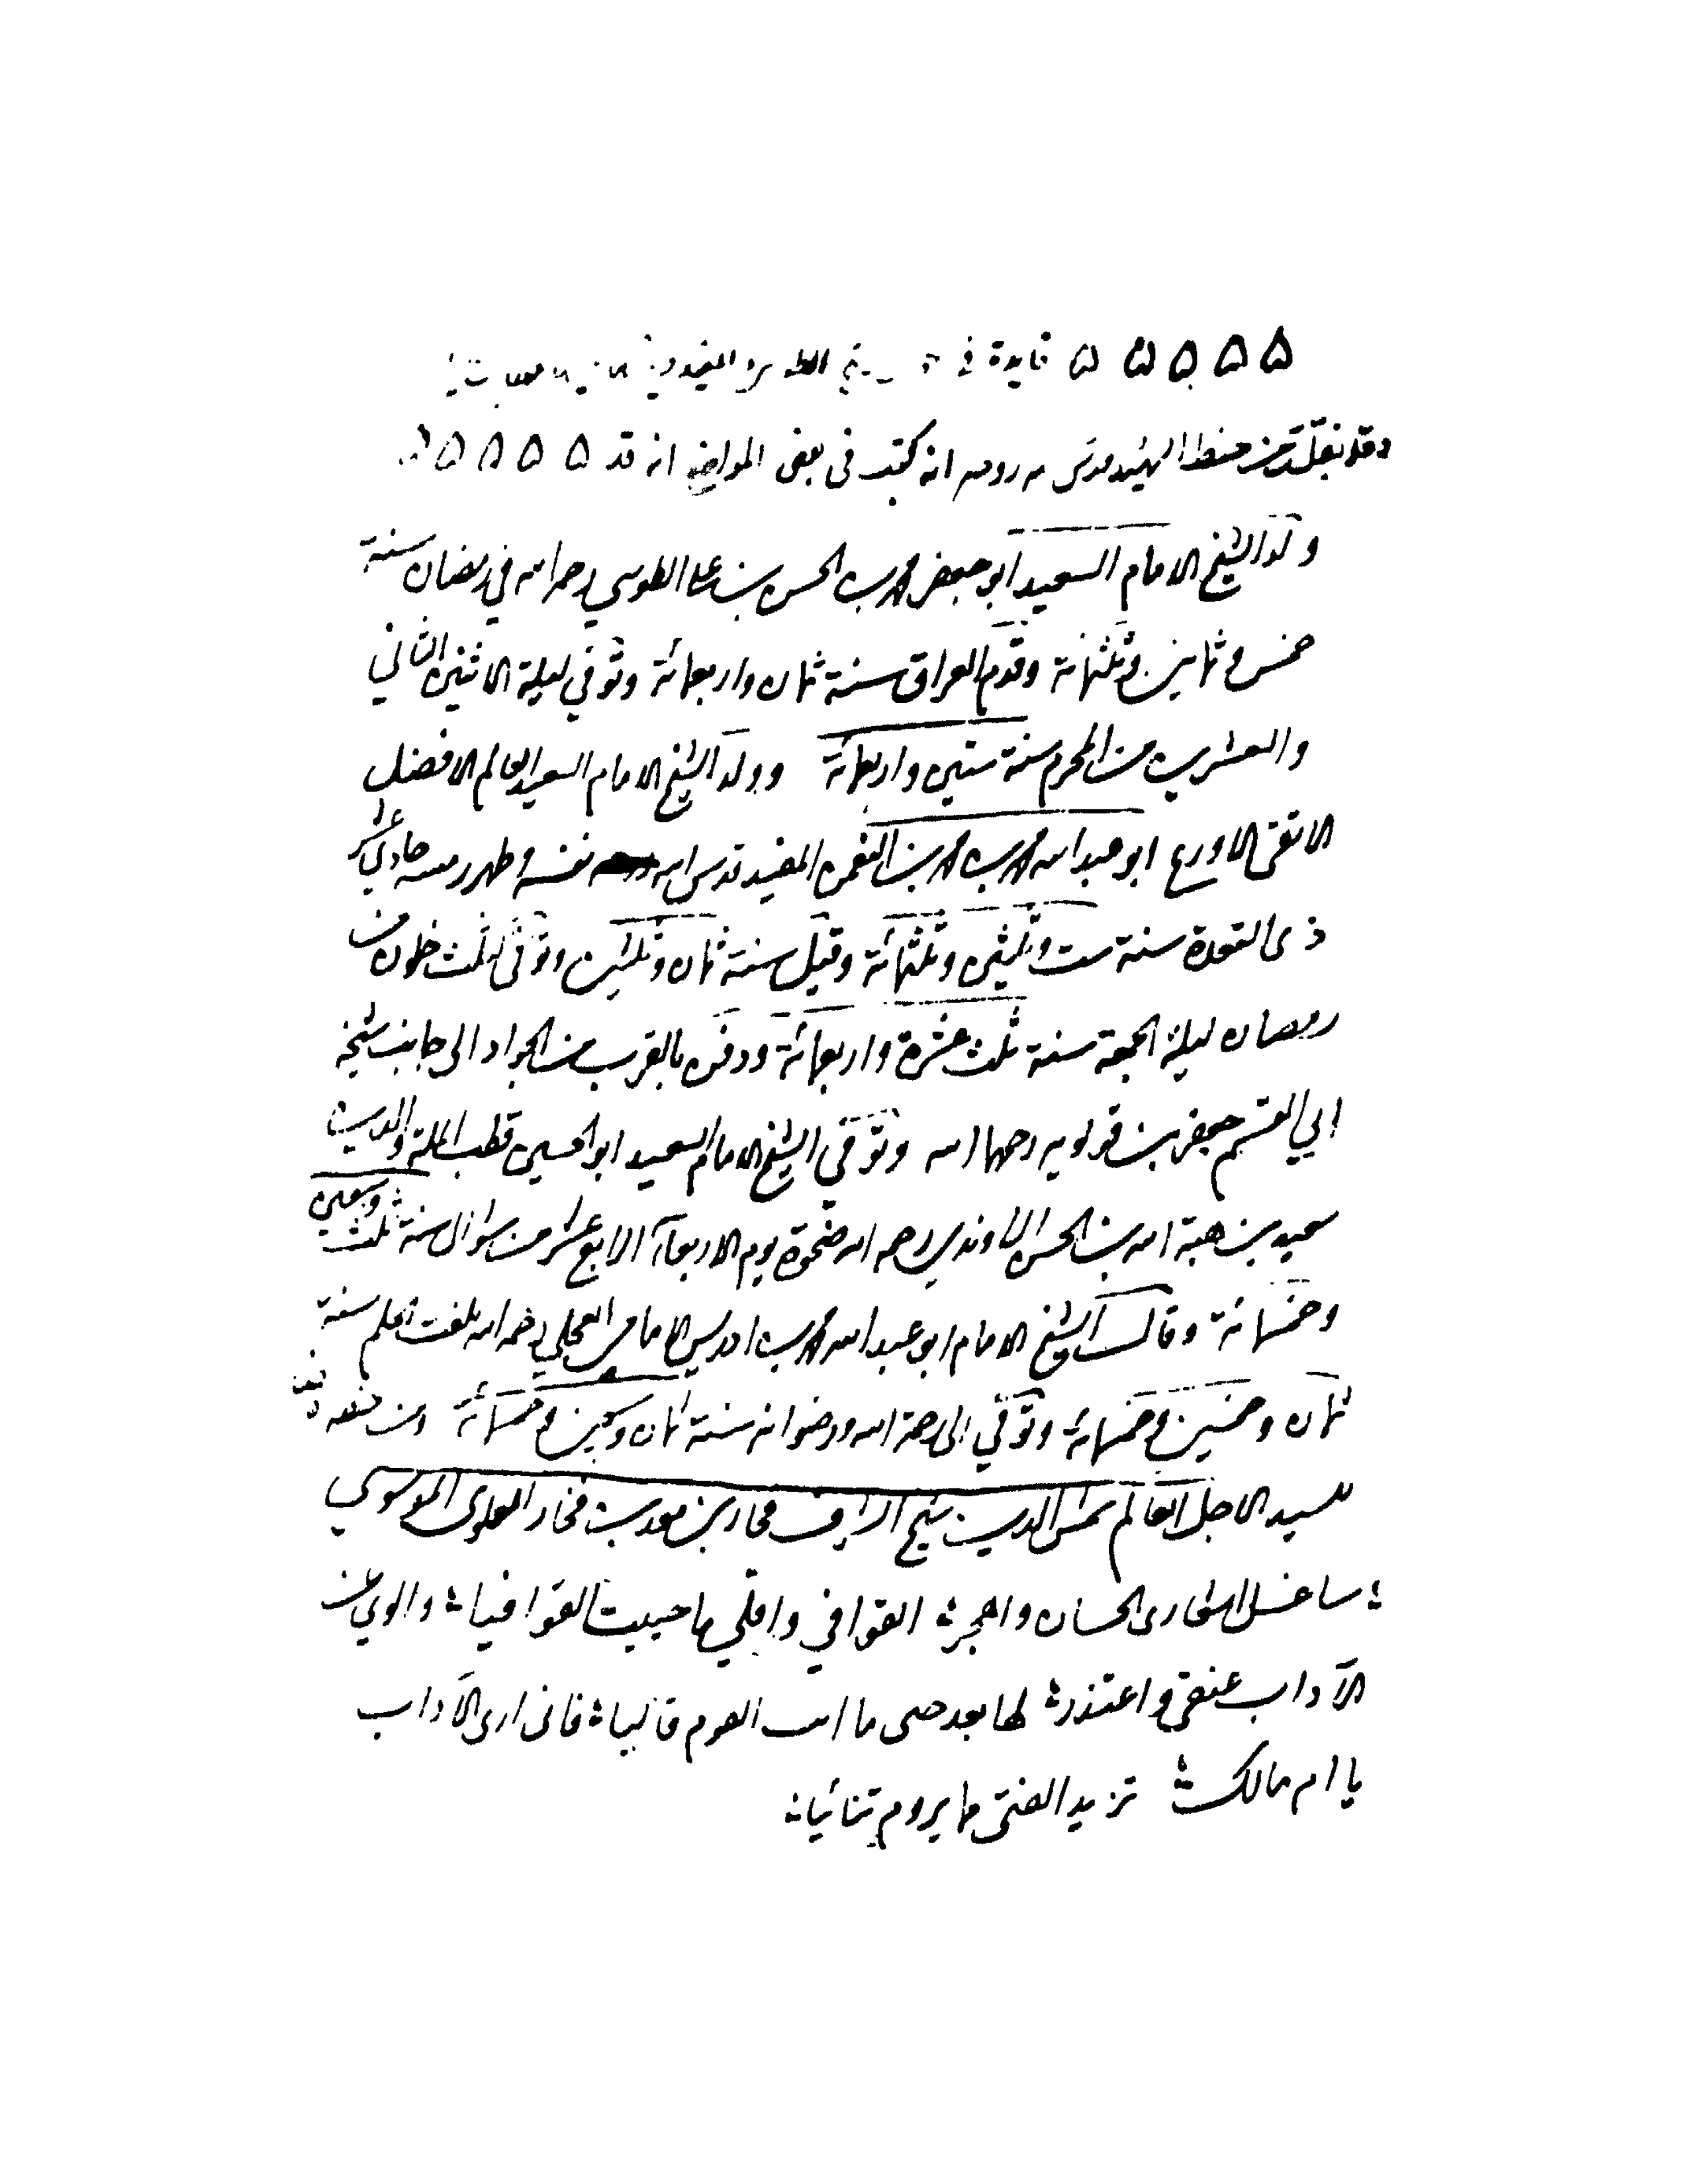 فايدة في
وقد نقلته من خط الشهيد قدس سره روحه انه كتب في بعض المواضع انه قد
ولد الشيخ الامام السعيد ابو جعفر محمد بن الحسن بن علي الطوسي رحمه الله في رمضان سنة
خمس وثمانين وثلثمائة وقدم العراق سنة ثمان واربعمائة وتوفي ليلة الاثنين الثاني
والعشرين من المحرم سنة ستين واربعمائة وولد الشيخ الامام السعيد العالم الافضل
الاتقى الاورع ابو عبد الله محمد بن محمد بن النعمن المفيد قدس الله نفسه وطهر رمسه حادي عشر
ذي القعدة سنة ست وثلثين وثلثمائة وقيل سنة ثمان وثلثين وتوفي لثلث خلون من
رمضان ليلة الجمعة سنة ثلث عشرة واربعمائة ودفن بالقرب من الجواد الى جانب شيخه
ابي القسم جعفر بن قولويه رحمهما الله وتوفي الشيخ الامام السعيد ابو الحسين قطب الملة والدين
سعيد بن هبة الله بن الحسن الراوندي رحمه الله ضحوة يوم الاربعاء الرابع عشر من شوال سنة ثلث وسبعين
وخمسمائة وقال الشيخ الامام ابو عبد الله محمد بن ادريس الامامي العجلي رحمه الله بلغت الحلم سنة
ثمان وخمسين وخمسمائة وتوفي الى رحمة الله ورضوانه سنة ثمان وسبعين وخمسمائة ومن خطه
للسيد الاجل العالم شمس الدين شيخ الشرف فخار بن معد بن فخار العلوي الموسوي
ساغسل اشعاري الحسان واهجر القوافي واقلي ما حييت القوافيا والوي عن
الآداب عنقي واعتذر لها بعد حتى ما ارى القوم قاليا فاني ارى الآداب
يا ام مالك تزيد الفتى مما يروم تنائيا